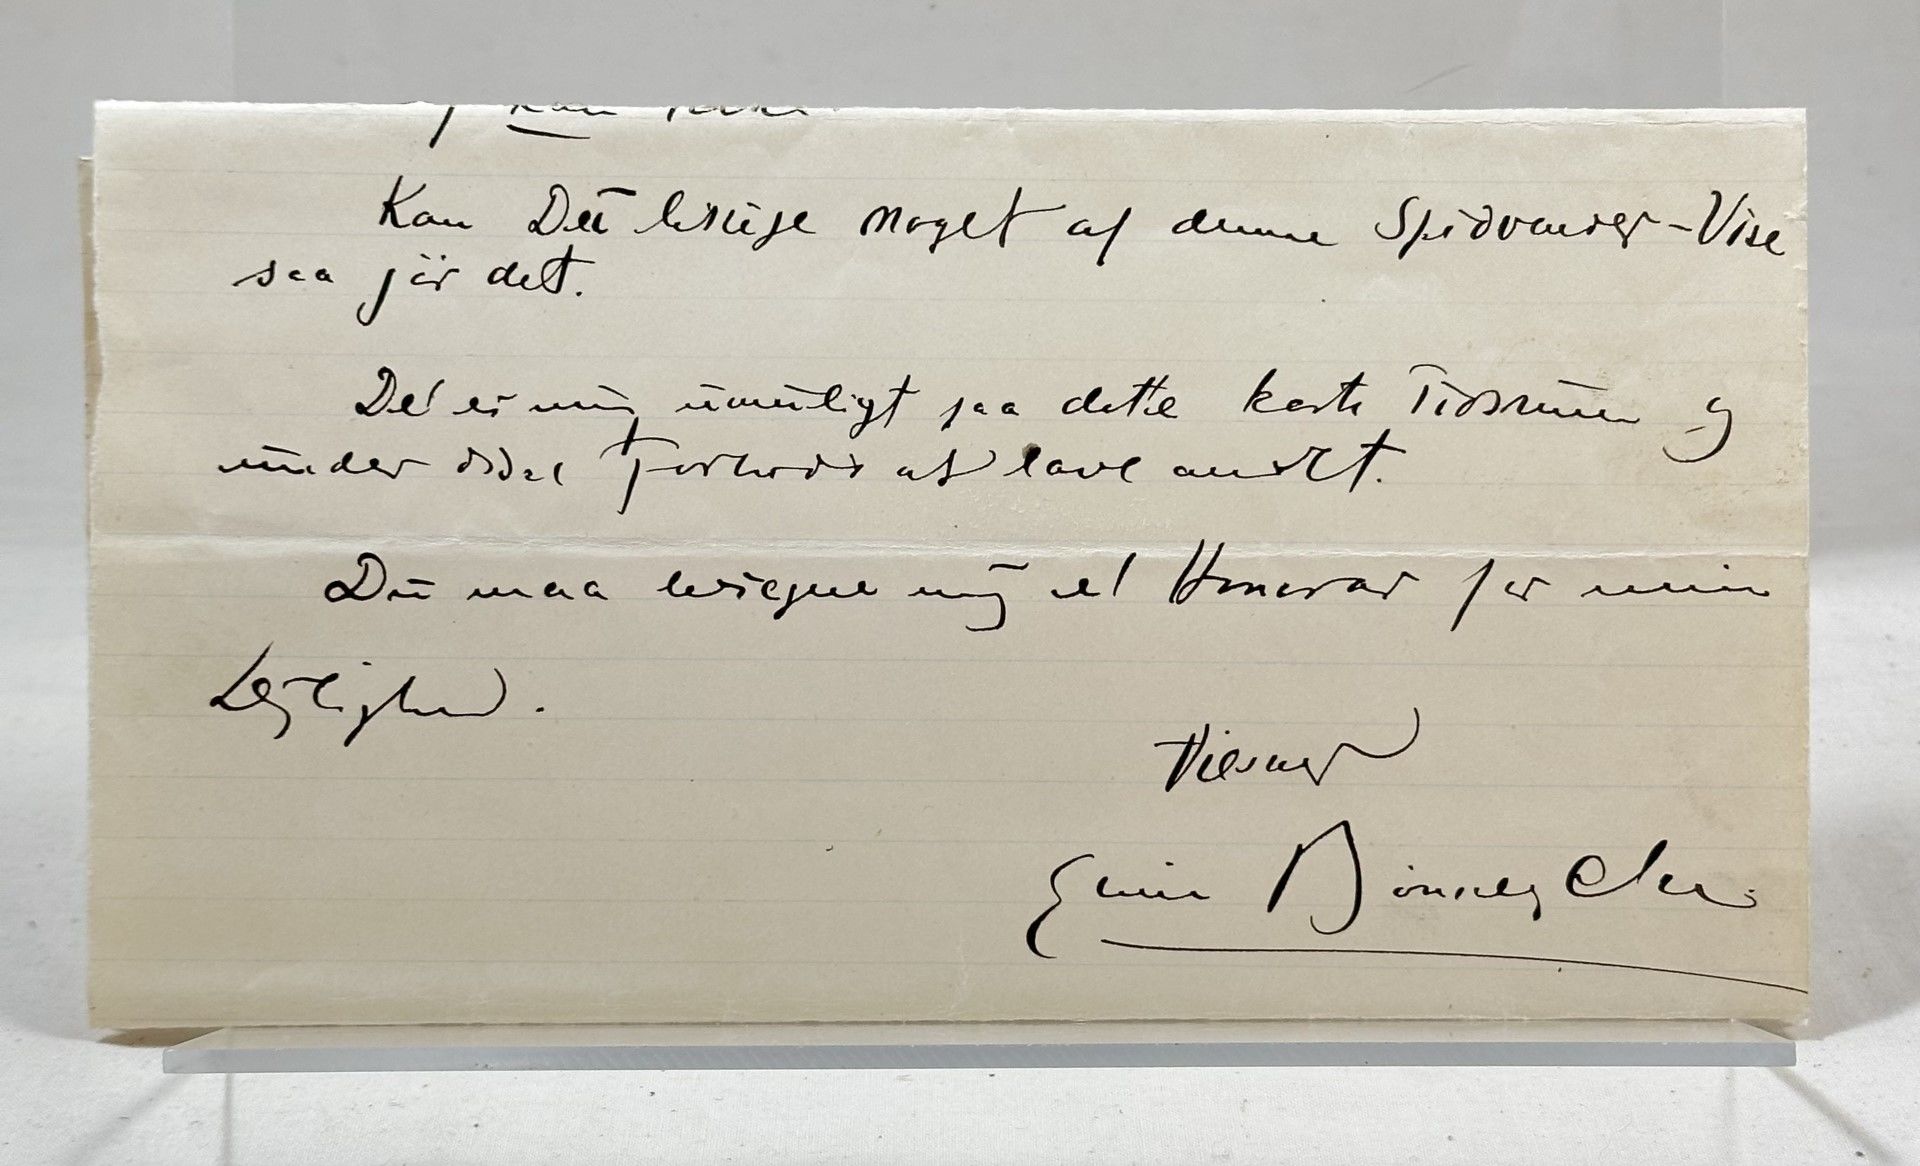 kan
Kan Du bruge noget af denne Spidvinder-Vise
saa gør det.
Det er mig umuligt paa dette korte Tidsrum og
under disse Forhold at lave andet.
Du maa beregne mig et Honorar for min
Lejlighed.
Emil Bønnelycke.